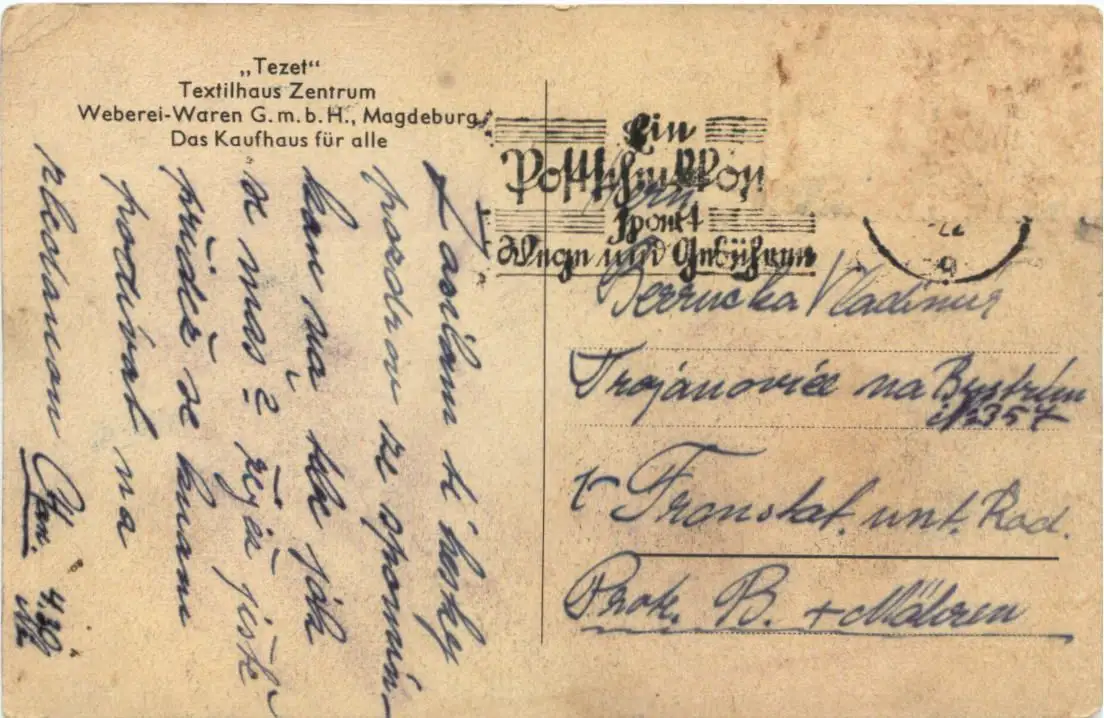 „Tezet“
Textilhaus Zentrum
Weberei-Waren G.m.b.H., Magdeburg
Das Kaufhaus für alle
Ein
Postscheckkonto
spart
Wege und Gebühren
Zasilam ti hesky
pozdrav ze spomín-
kam na tebe jak
se máš? zdja jistě
přídeš se knam
podívat na
shledanou
Vladimír
Trojanovice na Bystrém
čís 357
Franstat. unt. Rad.
Prok. B. + Mähren